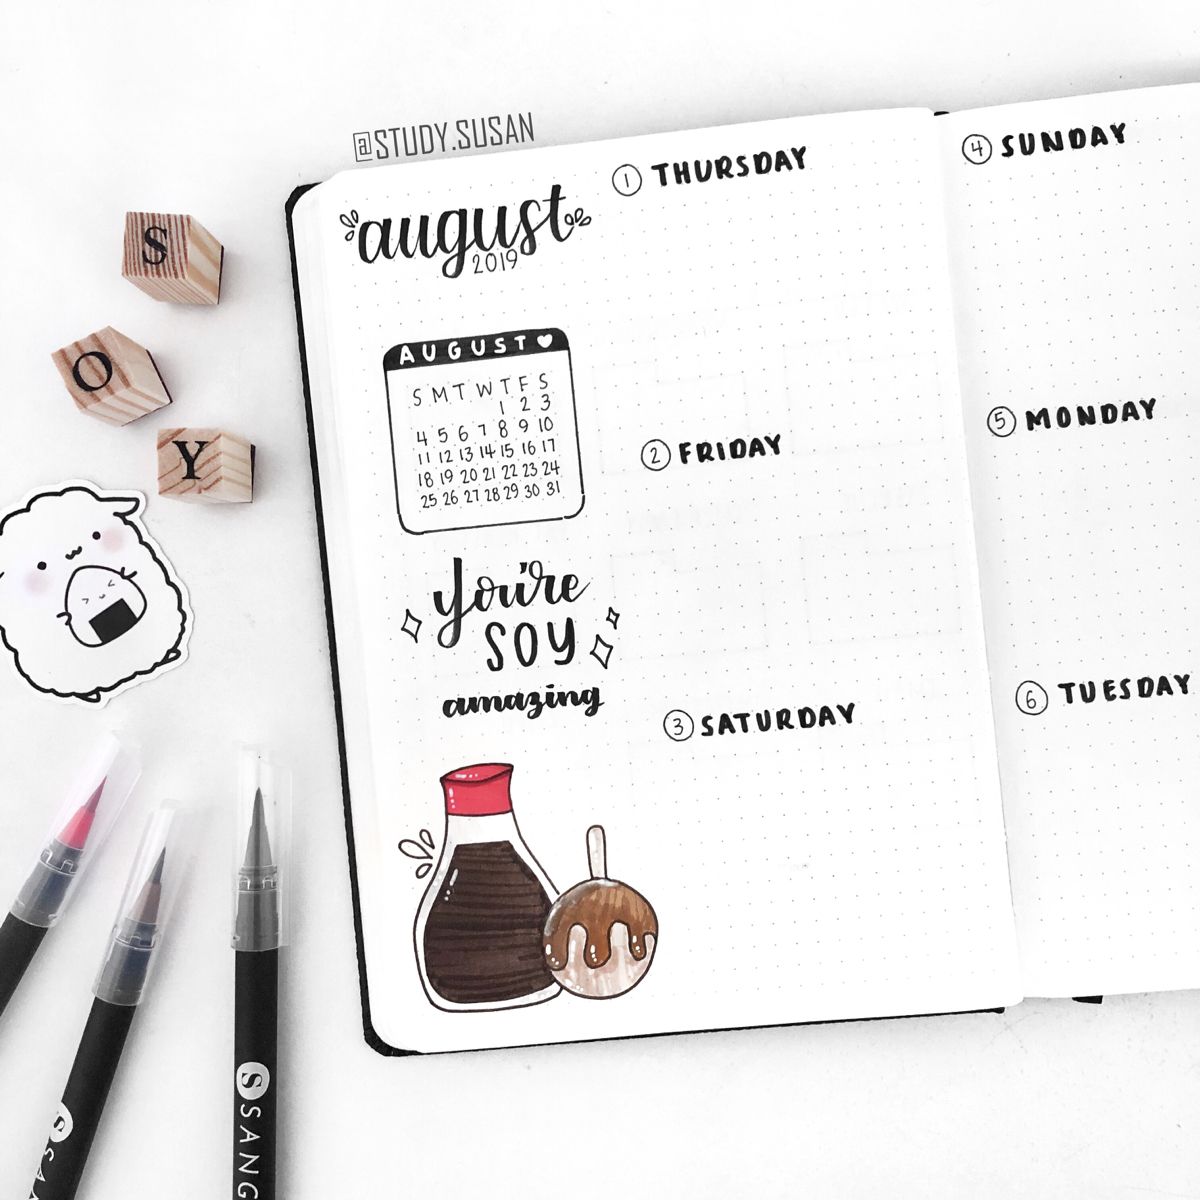 @STUDY.SUSAN
S
O
Y
august
2019
AUGUST
S M T W T F S
1 2 3
4 5 6 7 8 9 10
11 12 13 14 15 16 17
18 19 20 21 22 23 24
25 26 27 28 29 30 31
You're
SOY
amazing
1 THURSDAY
2 FRIDAY
3 SATURDAY
4 SUNDAY
5 MONDAY
6 TUESDAY
S SANG
S SA